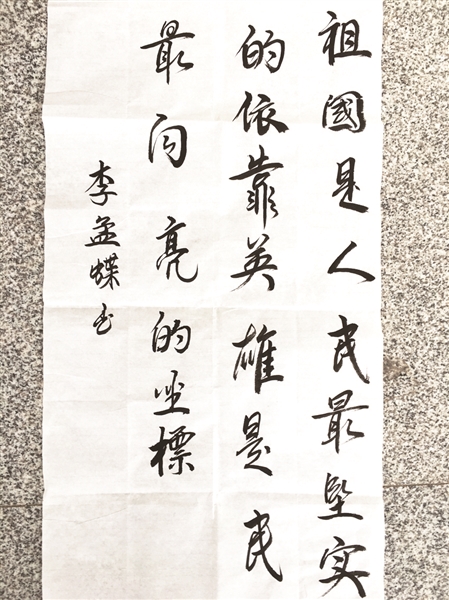 祖國是人民最坚实
的依靠英雄是民
最闪亮的坐標
李孟蝶书